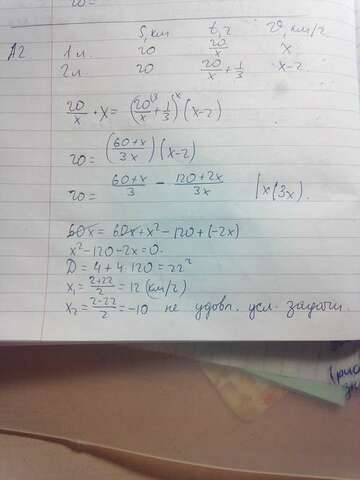 S, км t, ч V, км/ч
A2 1 л. 20 20/x x
2 л. 20 20/x + 1/3 x-2
20/x · x = (20/x + 1/3) (x-2)
20 = ((60+x)/3x) (x-2)
20 = (60+x)/3 - (120+2x)/3x | x(3x).
60x = 60x + x² - 120 + (-2x)
x² - 120 - 2x = 0.
D = 4 + 4·120 = 22²
x₁ = (2+22)/2 = 12 (км/ч)
x₂ = (2-22)/2 = -10 не удовл. усл. задачи.